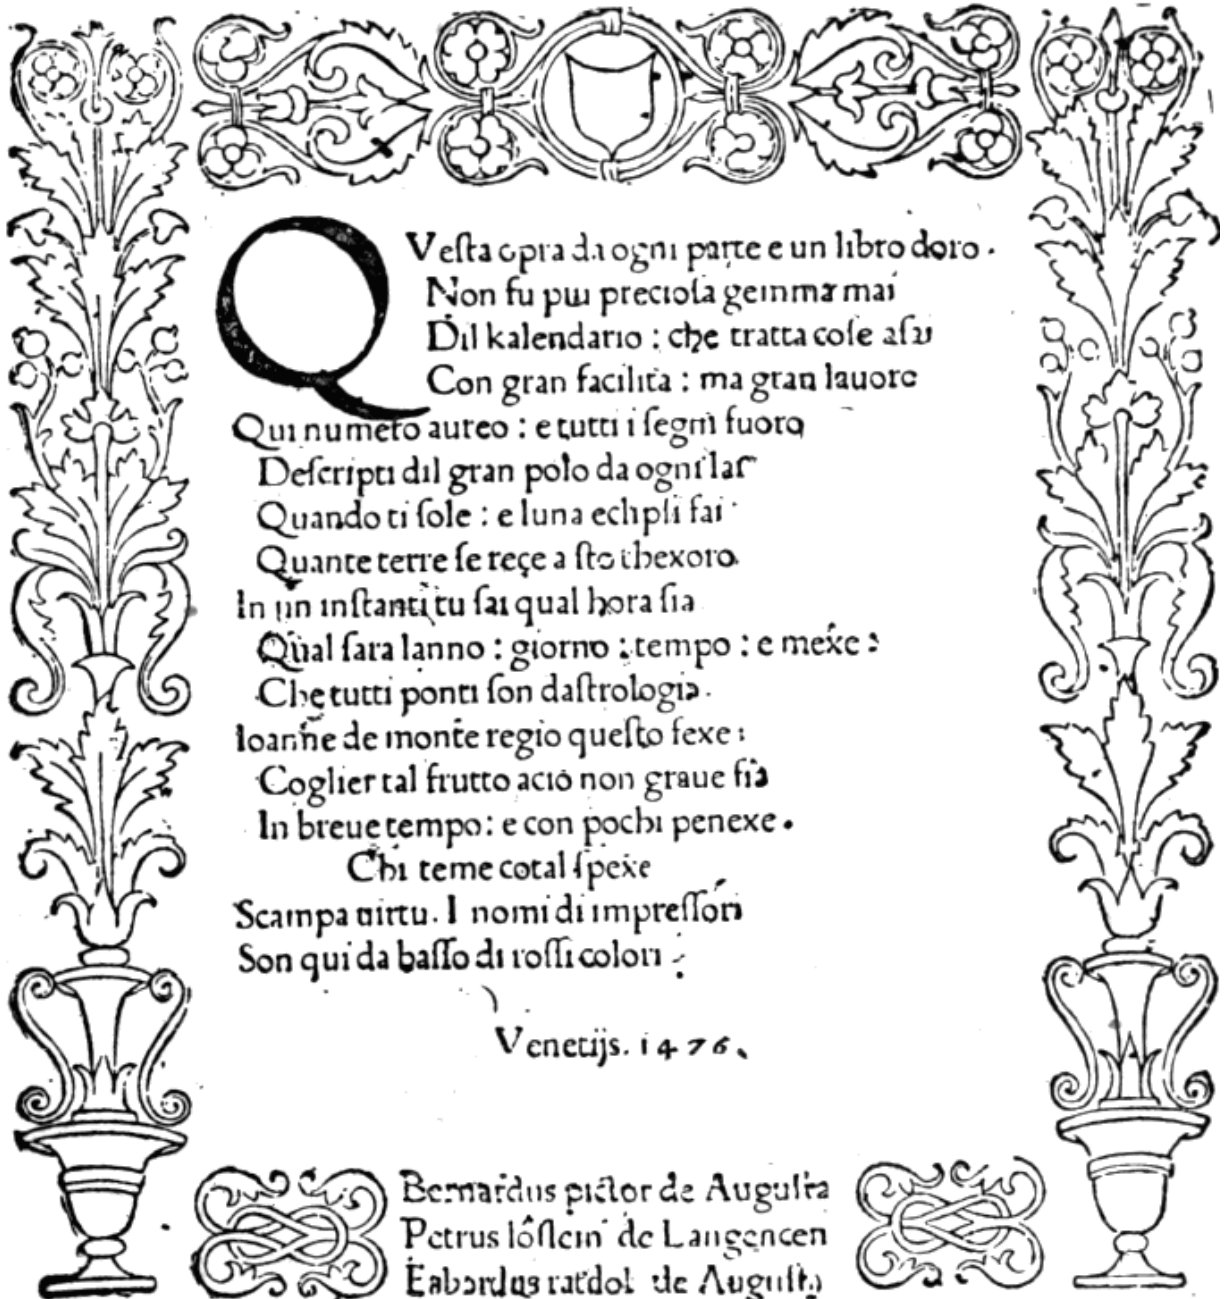 QVeſta opra da ogni parte e un libro doro.
Non fu piu precioſa gemma mai
Dil kalendario : che tratta coſe aſai
Con gran facilita : ma gran lauoro
Qui numero aureo : e tutti i ſegni fuoro
Deſcripti dil gran polo da ogni lai
Quando ti ſole : e luna eclipſi fai
Quante terre ſe rege a ſto thexoro.
In un inſtanti tu ſai qual hora ſia
Qual ſara lanno : giorno : tempo : e mexe :
Che tutti ponti ſon daſtrologia.
Ioanne de monte regio queſto fexe :
Coglier tal frutto acio non graue ſia
In breue tempo : e con pochi penexe.
Chi teme cotal ſpexe
Scampa uirtu. I nomi di impreſſori
Son qui da baſſo di roſſi colori.
Venetijs. 1476.
Bernardus pictor de Auguſta
Petrus lôſlein de Langencen
Erhardus ratdolt de Auguſta